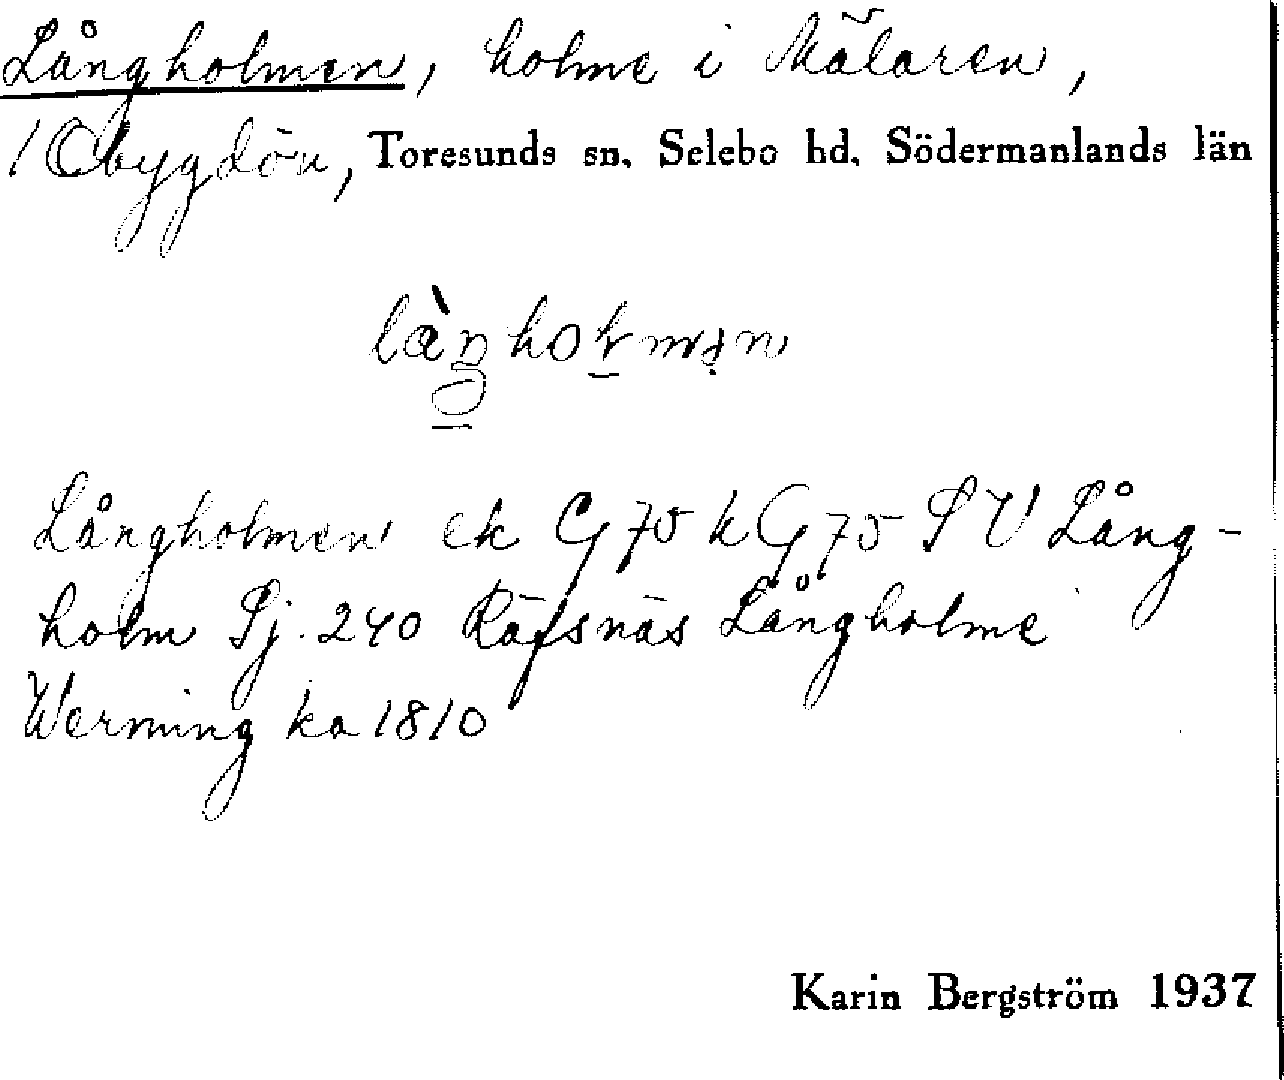 Långholmen, holme i Mälaren,
/Obygdön, Toresunds sn. Selebo hd. Södermanlands län
làŋholmən
Långholmen ek G 75 k G 75 SV Lång-
holm Sj. 240 Räfsnäs Långholme
Werming ka 1810
Karin Bergström 1937